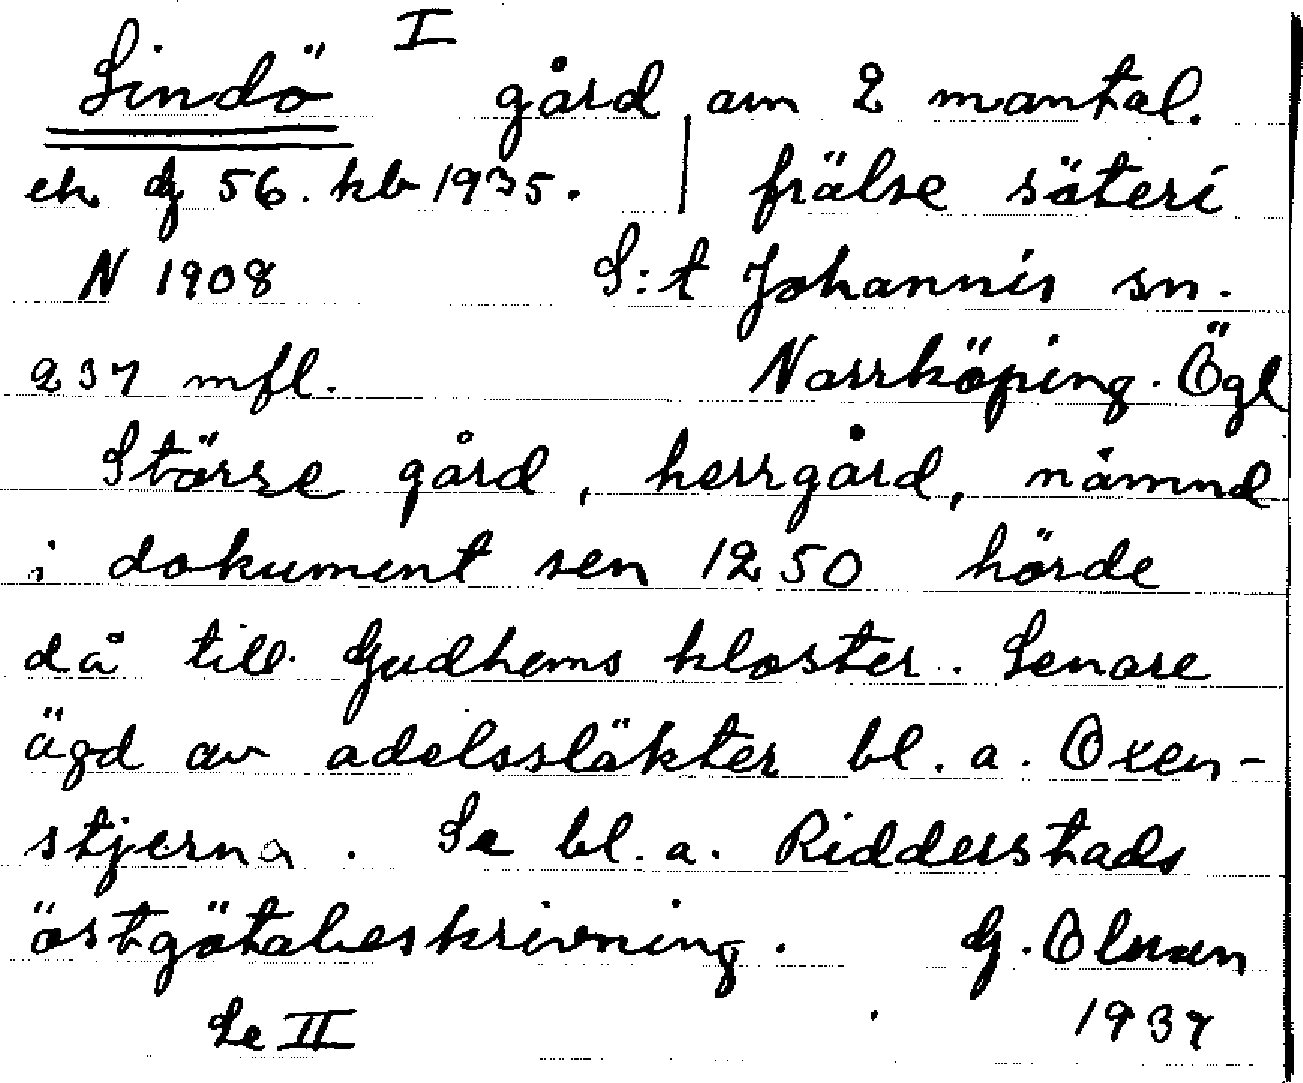 I
Lindö gård om 2 mantal.
ek G 56. kb 1935. frälse säteri
N 1908 S:t Johannis sn.
237 mfl. Norrköping. Ögl
Större gård, herrgård, nämnd
i dokument sen 1250 hörde
då till Gudhems kloster. Senare
ägd av adelssläkter bl. a. Oxen-
stjerna. Se bl. a. Ridderstads
östgötabeskrivning. G. Olsson
Se II 1937